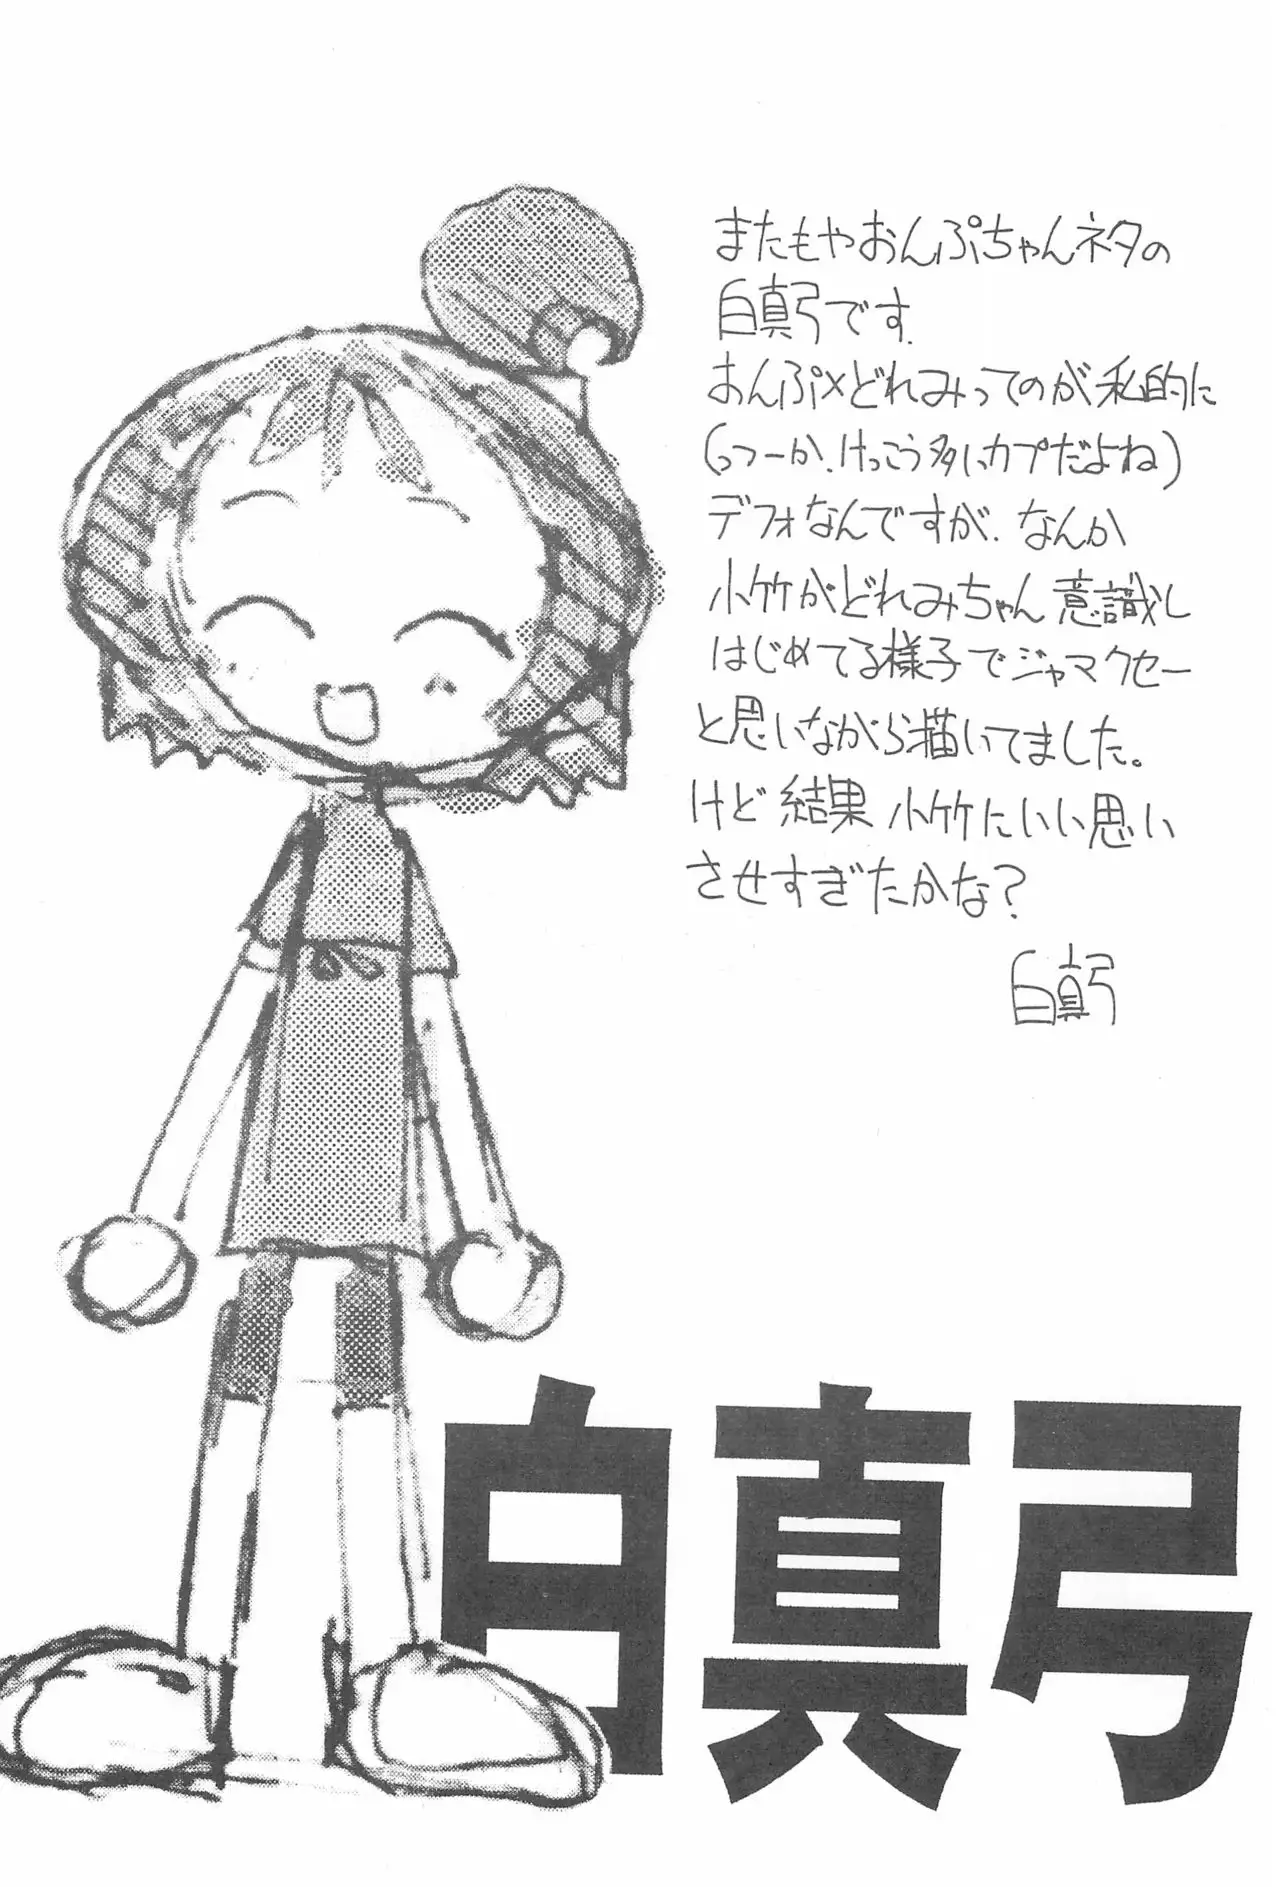 またもやおんぷちゃんネタの
白真弓です.
おんぷ×どれみってのが私的に
(っつーか.けっこう多いカプだよね)
デフォなんですが.なんか
小竹がどれみちゃん意識し
はじめてる様子でジャマクセー
と思いながら描いてました。
けど結果小竹にいい思い
させすぎたかな?
白真弓
白真弓